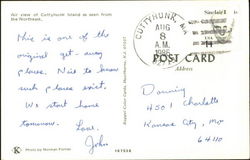 Air view of Cuttyhunk Island is seen from
the Northeast.
This is one of the
original get-away
places. Nice to know
such places exist.
We start home
tomorrow.
Love,
John
CUTTYHUNK, MA
AUG
8
A.M.
1986
POST CARD
Address
Downing
4501 Charlotte
Kansas City, Mo
64110
Photo by Norman Fortier
167528